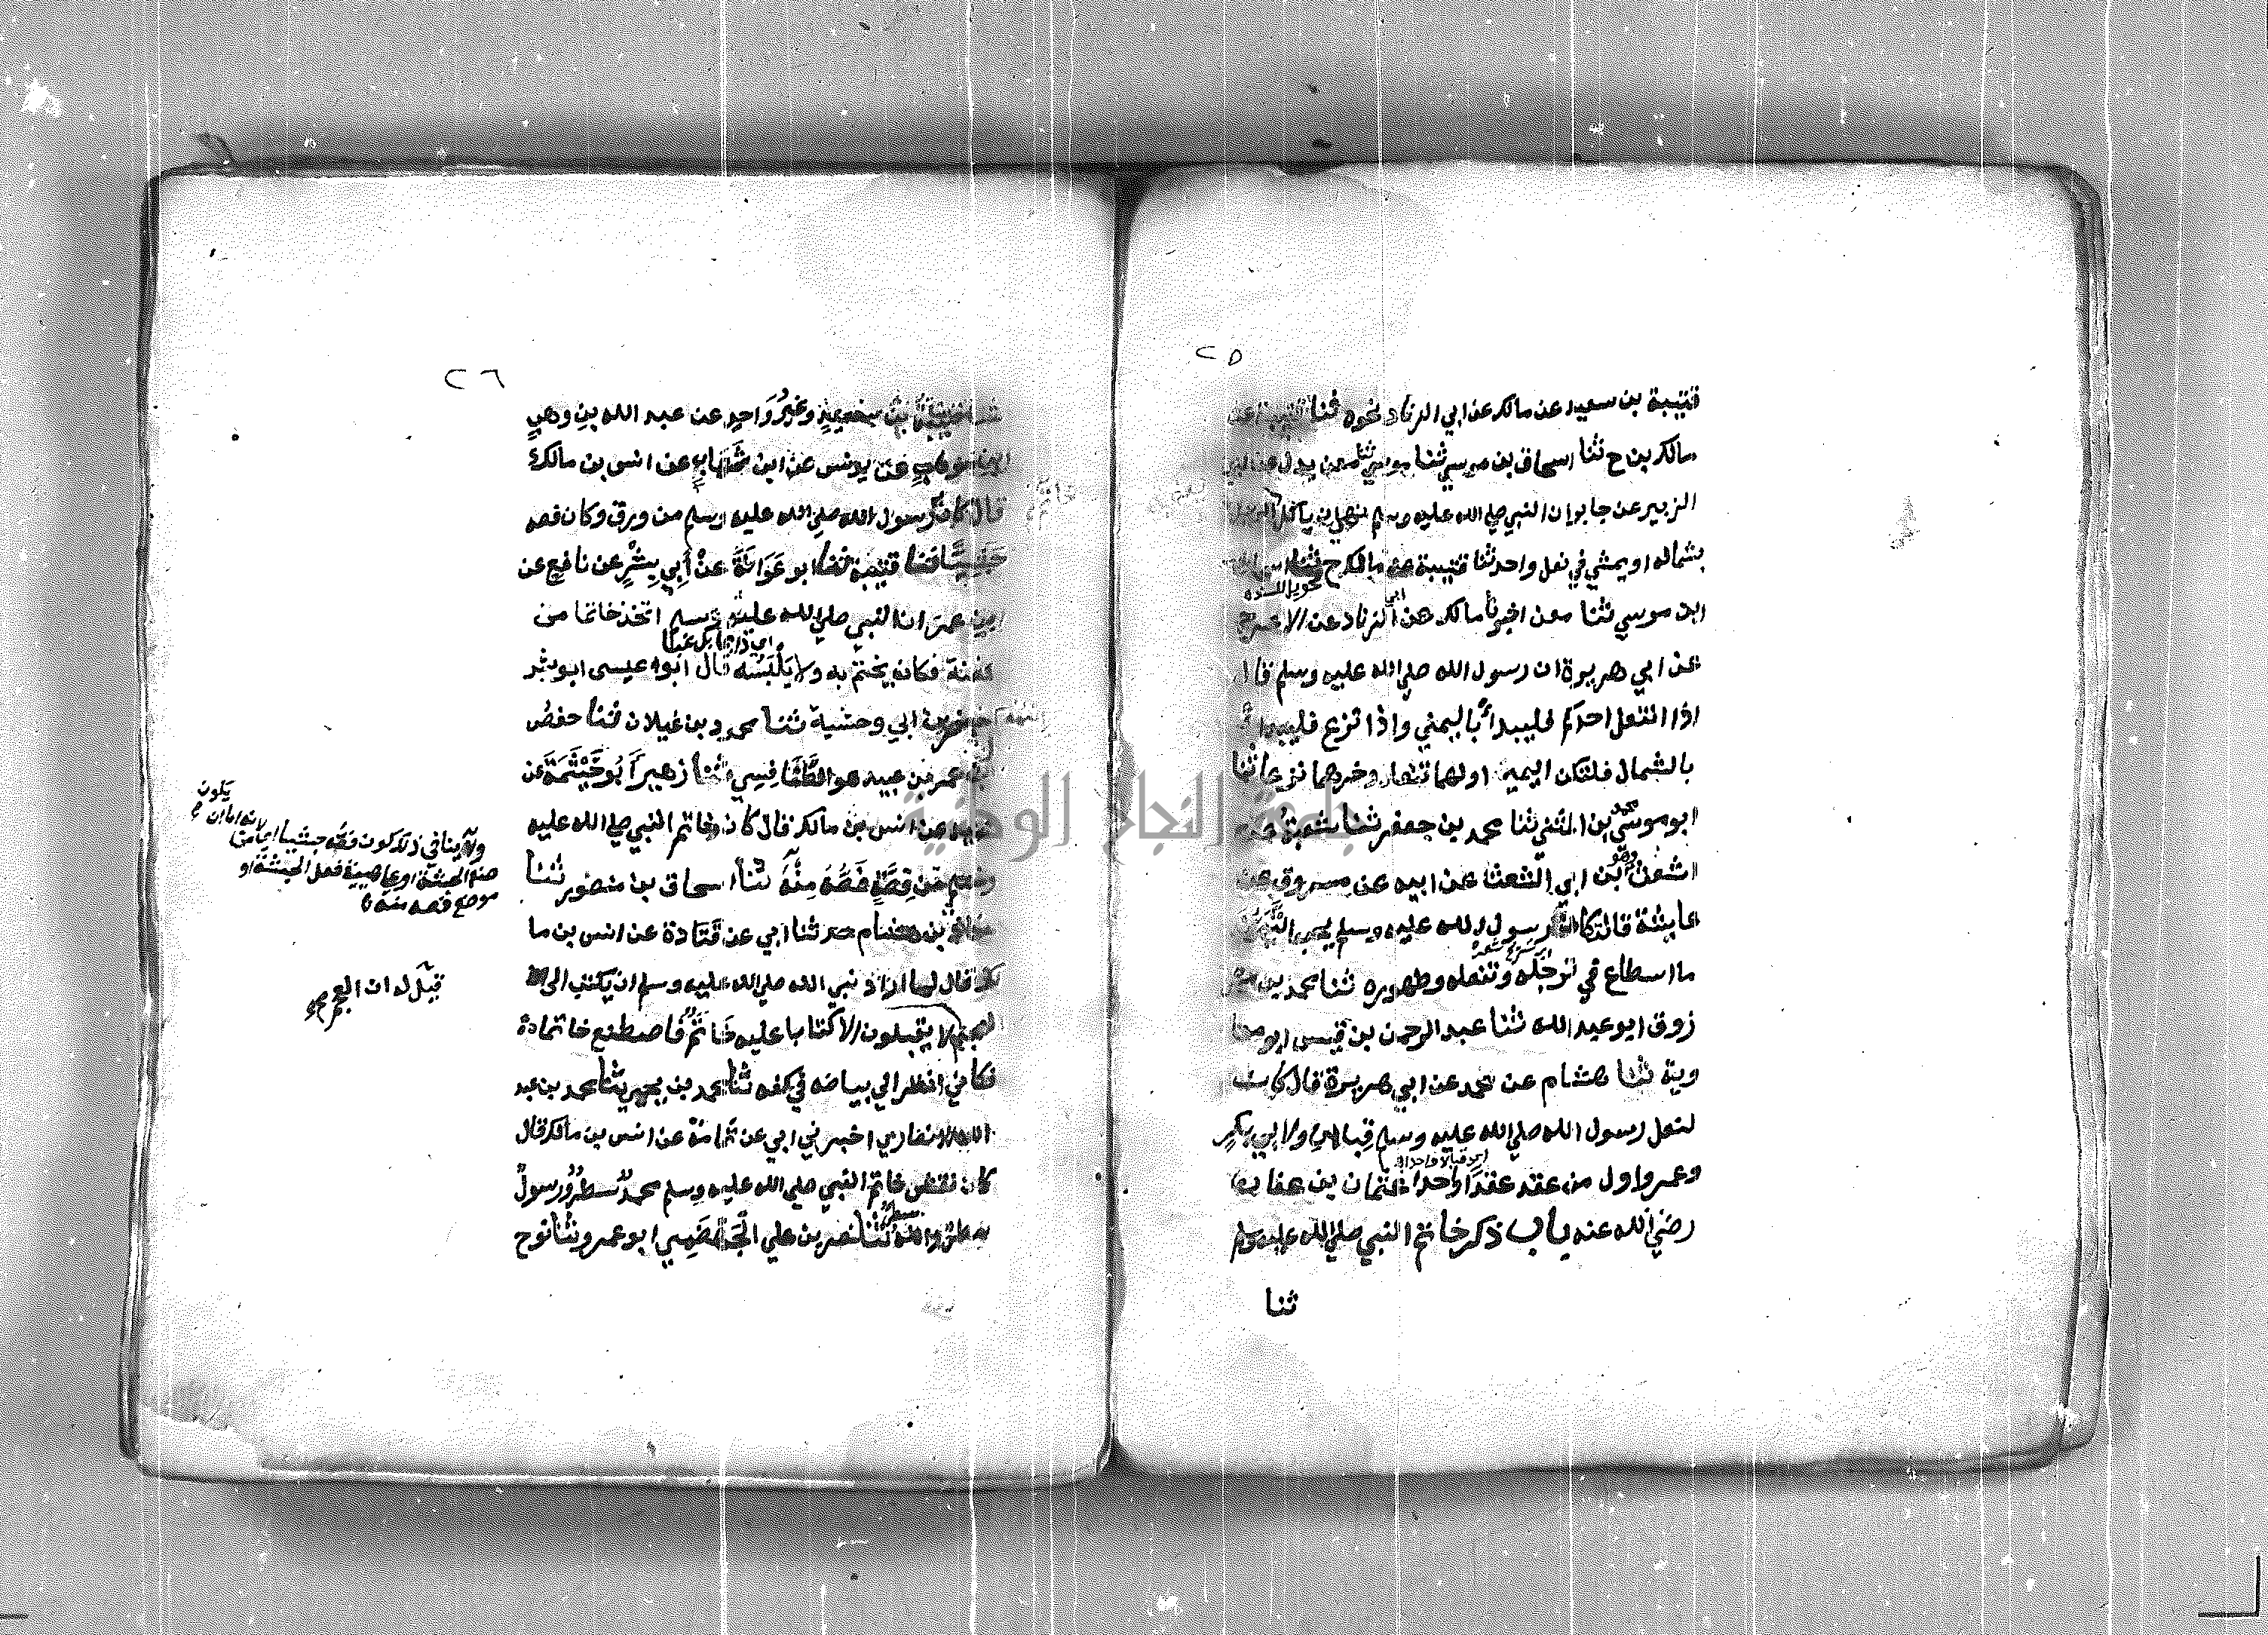 ٢٥
قتيبة بن سعيد عن مالك عن ابي الزناد نحوه ثنا قتيبة عن
مالك بن ح ثنا اسحاق بن موسي ثنا معن
الزبير عن جابر ان النبي صلي الله عليه وسلم نهي ان ياكل
بشماله او يمشي في نعل واحد ثنا قتيبة عن مالك ح ثنا اسحاق
تحويل السند
ابن موسي ثنا معن اخبرنا مالك عن ابي الزناد عن الاعرج
عن ابي هريرة ان رسول الله صلي الله عليه وسلم قال
اذا انتعل احدكم فليبدأ باليمني واذا نزع فليبدأ
بالشمال فلتكن اليمين اولهما تنعل واخرهما نزع ثنا
ابو موسي محمد بن المثني ثنا محمد بن جعفر ثنا شعبة
اشعث وهو ابن ابي الشعثا عن ابيه عن مسروق عن
عايشة قالت كان رسول الله عليه وسلم يحب التيمن
ما اسطاع في ترجله وتنعله وطهوره ثنا محمد بن مر
زوق ابو عبد الله ثنا عبد الرحمن بن قيس ابو معا
وية ثنا هشام عن محمد عن ابي هريرة قال كانت
لنعل رسول الله صلي الله عليه وسلم قبالان ولابي بكر
اي قبالا واحدا
وعمر واول من عقد عقدا واحدا عثمان بن عفان
رضي الله عنه باب ذكر خاتم النبي صلي الله عليه وسلم
ثنا
٢٦
قتيبة بن سعيد وغير واحد عن عبد الله بن وهب
عن يونس عن ابن شهاب عن انس بن مالك
قال كان رسول الله صلي الله عليه وسلم من ورق وكان فصه
حبشيا ثنا قتيبة ثنا ابو عوانة عن أبي بشر عن نافع عن
ابن عمر ان النبي صلي الله عليه وسلم اتخذ خاتما من
اي دايما بل غبا
فضة فكان يختم به ولا يلبسه قال ابو عيسى ابو بشر
جعفر بن ابي وحشية ثنا محمود بن غيلان ثنا حفص
ابن عمر بن عبيد هو الطنافسي ثنا زهير أبو خيثمة عن
حميد عن انس بن مالك قال كان خاتم النبي صلي الله عليه
وسلم من فضة فصه منه ثنا اسحاق بن منصور ثنا
معاذ بن هشام حدثنا ابي عن قتادة عن انس بن ما
لك قال لما اراد نبي الله صلي الله عليه وسلم ان يكتب الى
العجم لا يقبلون الا كتابا عليه خاتم فاصطنع خاتما
فكاني انظر الي بياضه في كفه ثنا محمد بن يحيي ثنا محمد بن عبد
الله الانصاري اخبرني ابي عن ثمامة عن انس بن مالك قال
كان نقش خاتم النبي صلي الله عليه وسلم محمد سطر ورسول
سطر والله سطر ثنا نصر بن علي الجهضمي ابو عمرو ثنا نوح
ولا ينافي ذلك كون فصه حبشيا
موضع فصه منه
قيل له ان العجم
جامعة النجاح الوطنية